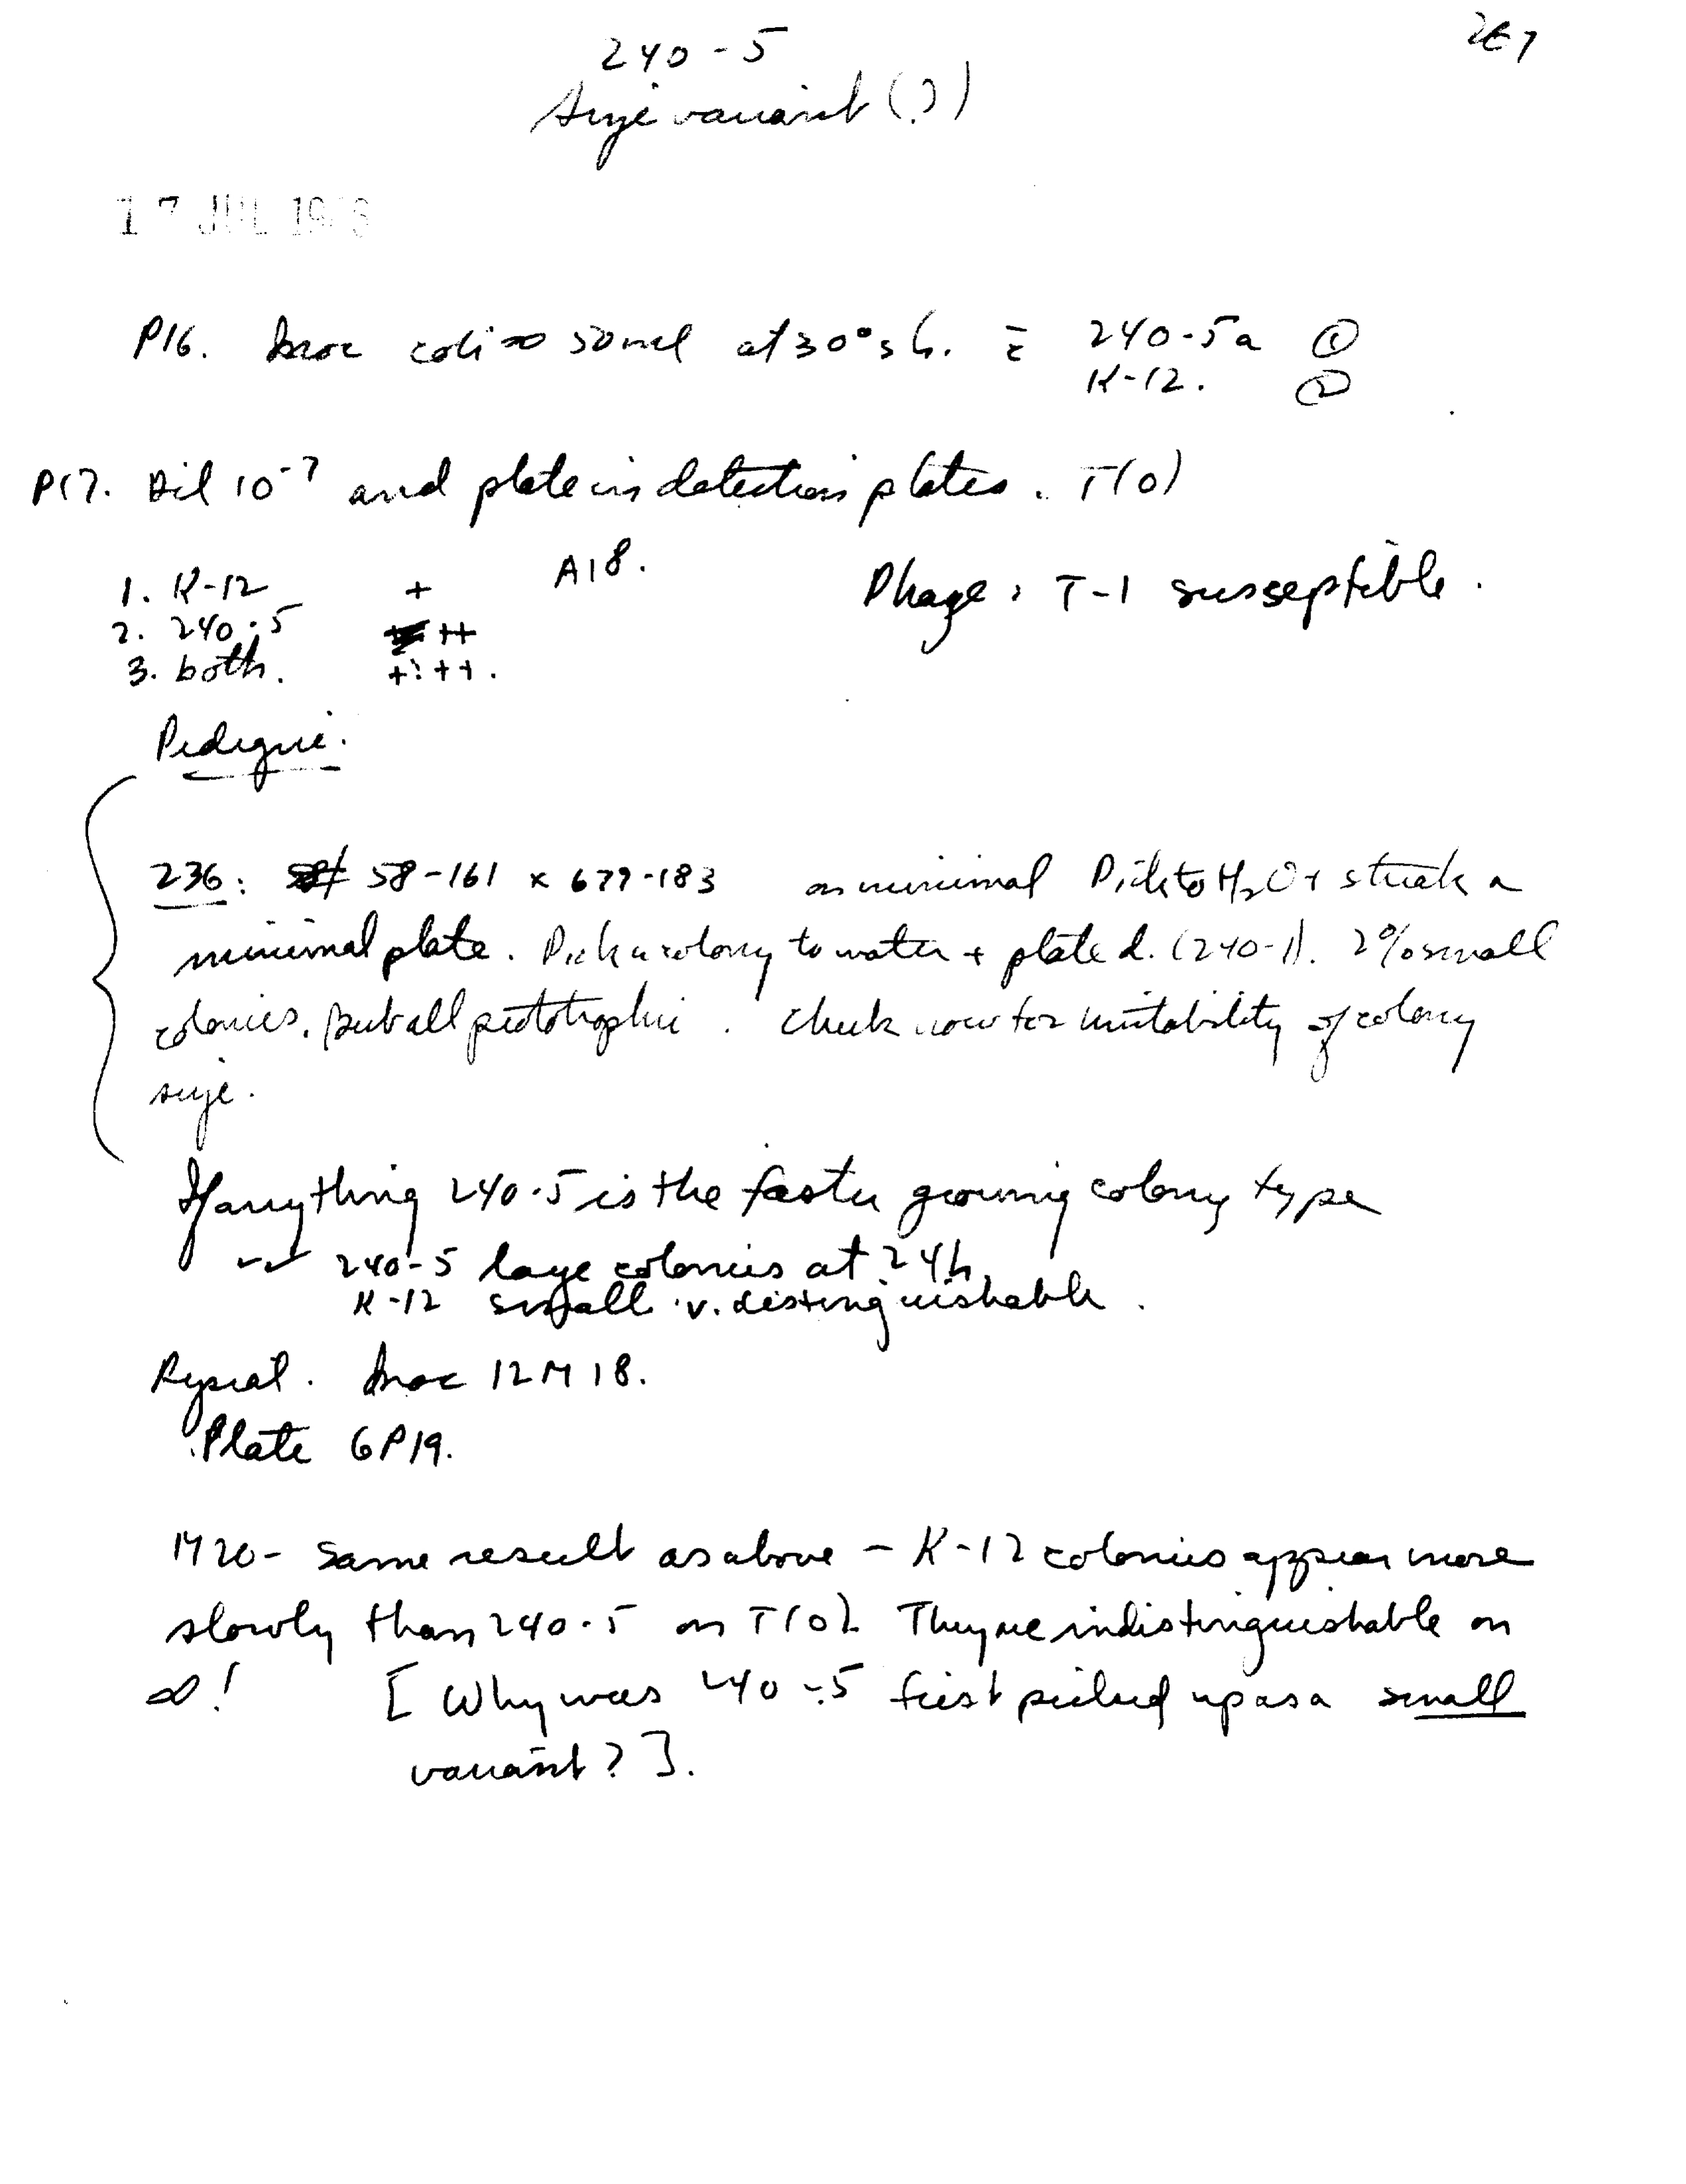 267
240-5
Size variant (?)
17 JUL 19
P16. Inoc coli ∞ 50 ml at 30° sh. c̄ 240-5a ①
K-12. ②
P17. Dil 10⁻⁷ and plate in detection plates. T(0)
1. K-12 + A18.
2. 240-5 ++
3. both. +:++.
Phage: T-1 susseptible.
Pedigree.
236: 58-161 x 677-183 on minimal Pick to H₂O + streak a
minimal plate. Pick a colony to water + plate d. (240-1). 2% small
colonies, but all prototrophic. Check now for mutability of colony
size.
If anything 240-5 is the faster growing colony type
240-5 large colonies at 24h.
K-12 small v. distinguishable.
Repeat. Inoc 12M18.
Plate 6P19.
M20- Same result as above - K-12 colonies appear more
slowly than 240-5 on T(0). They are indistinguishable on
∞! [Why was 240-5 first picked up as a small
variant?].